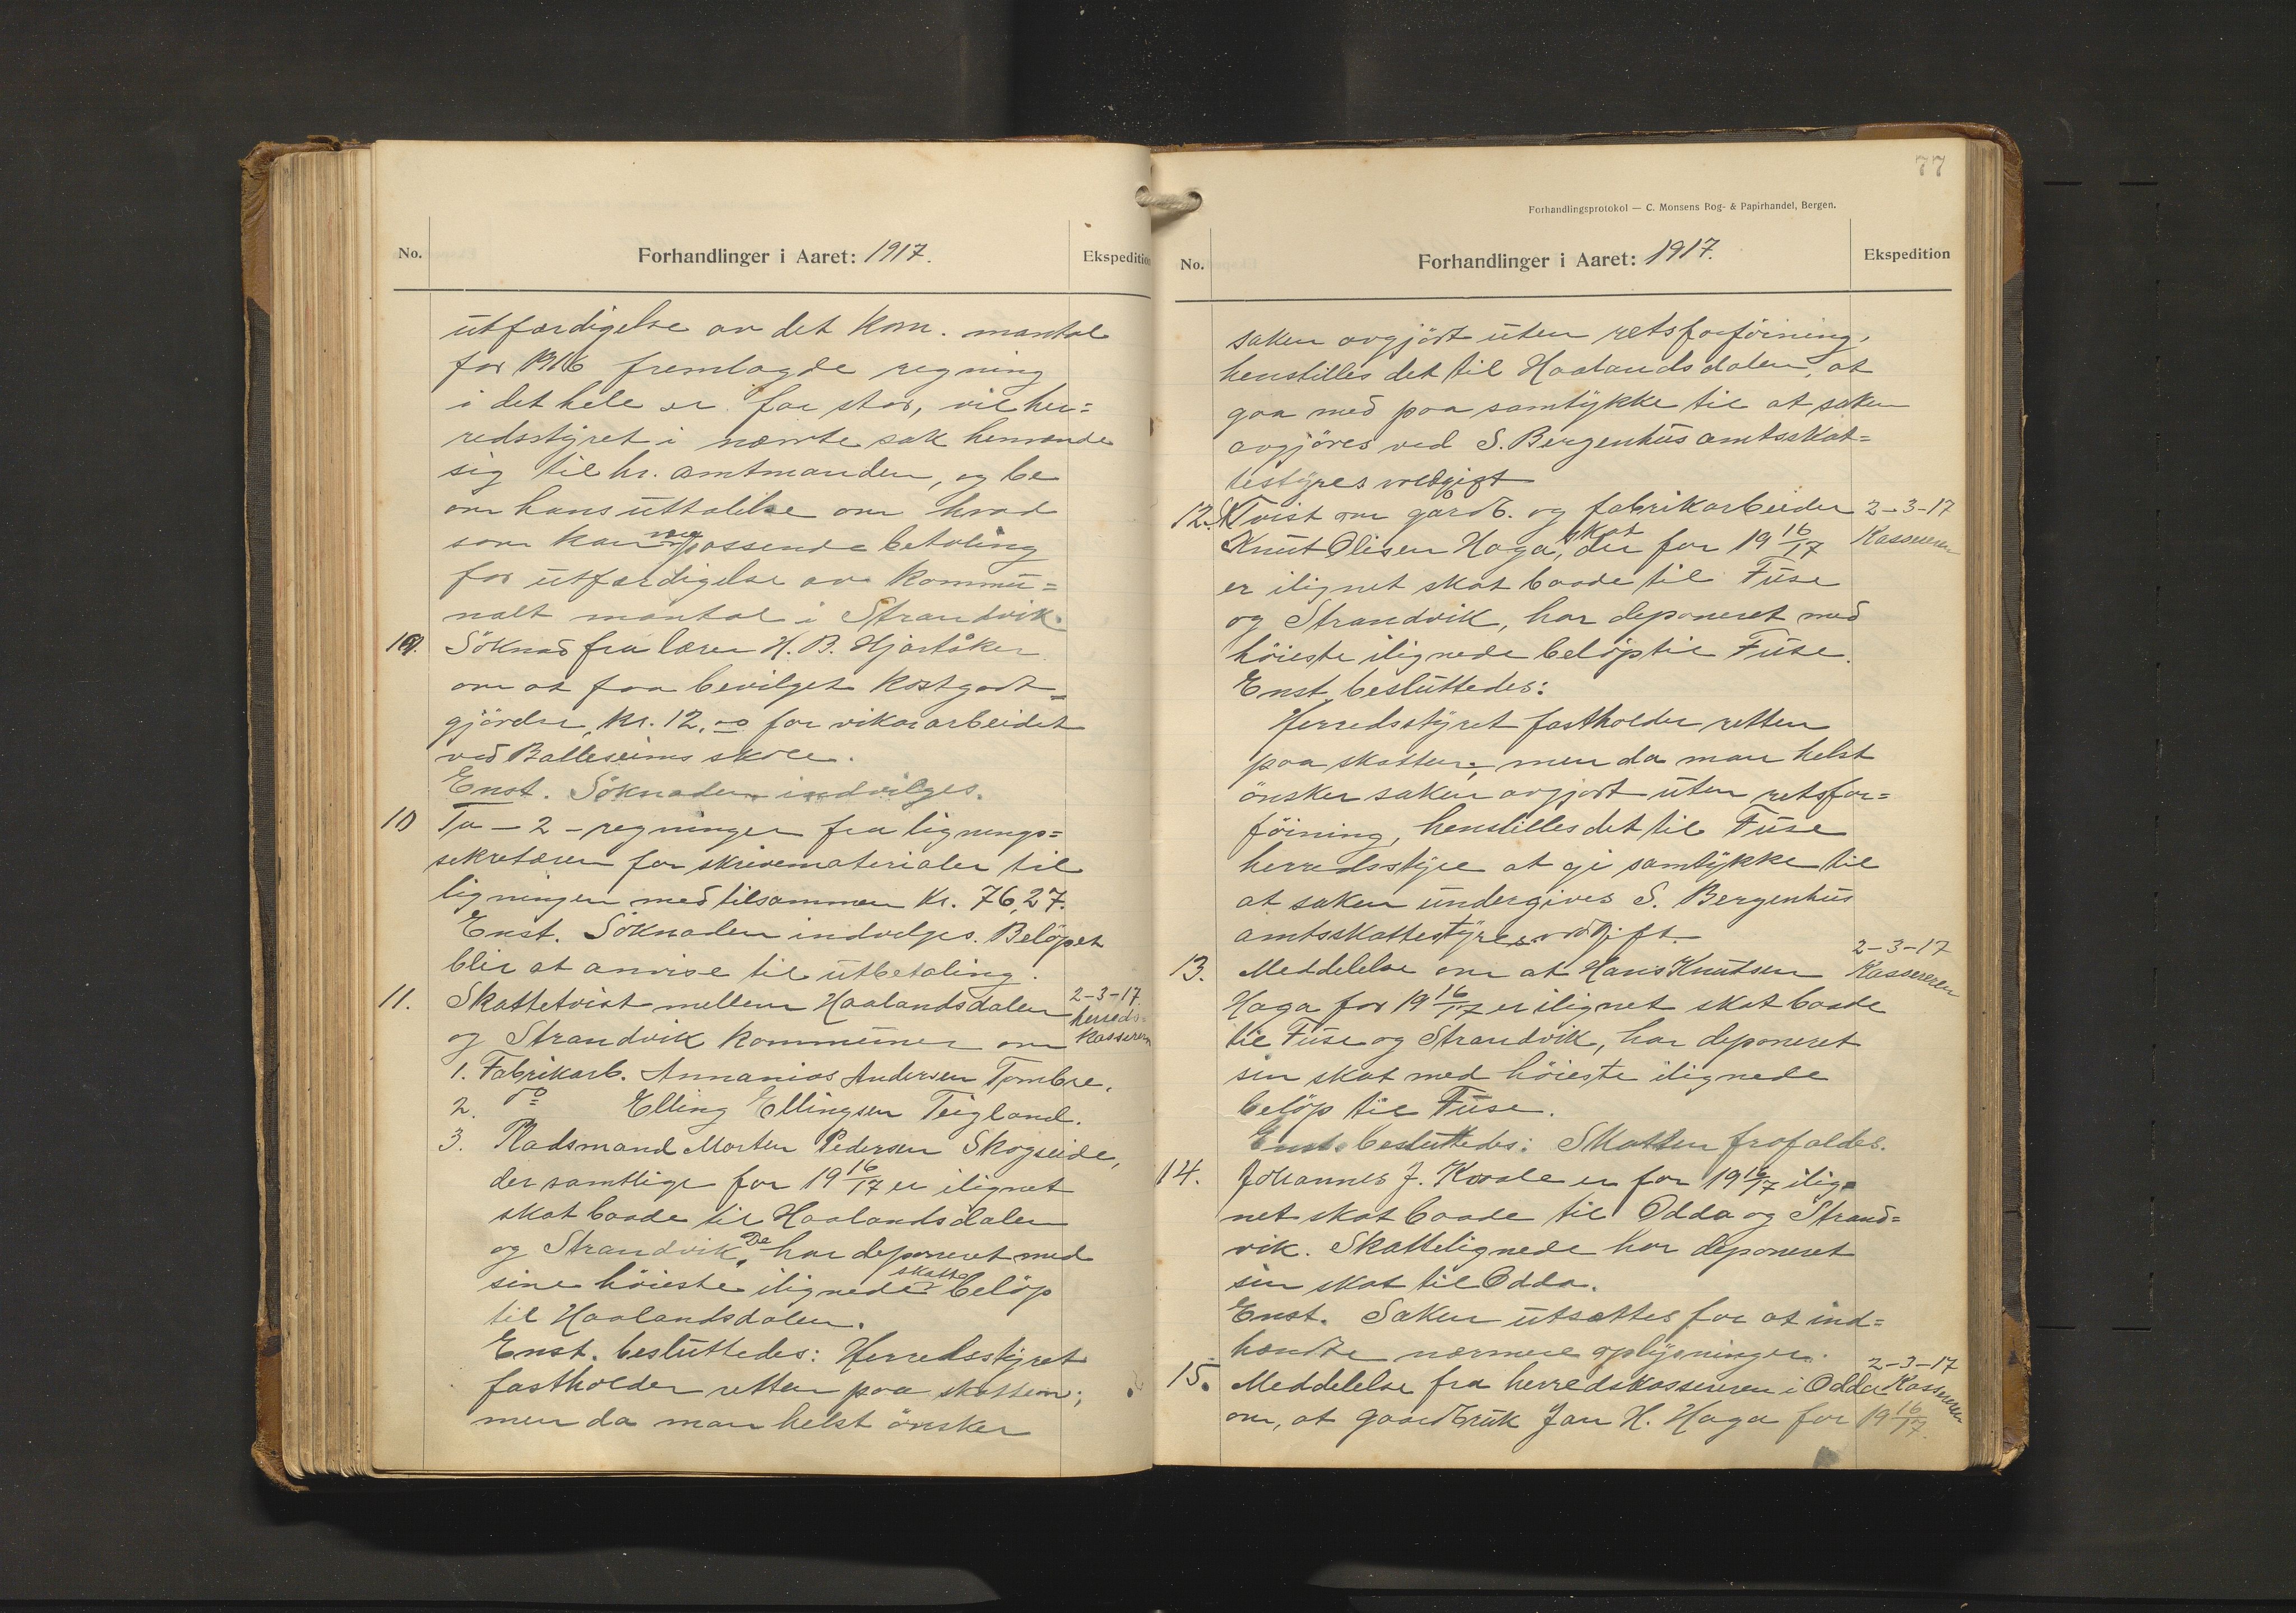 No.
Forhandlinger i Aaret: 1917.
Ekspedition
utfærdigelse av det kom. mantal
for 1916 fremlagde regning
i det hele er for stor, vil her=
redsstyret i nævnte sak henvende
sig til hr. amtmanden, og be
om hans uttalelse om hvad
som kan være passende betaling
for utfærdigelse av kommu=
nalt mantal i Strandvik.
9. Söknad fra lærer H. B. Hjartåker
om at faa bevilget kostgodt=
gjörelse, kr. 12,00 for vikararbeidet
ved Balleseims skole.
Enst. Söknaden indvilges.
10 To - 2 - regninger fra lignings=
sekretæren for skrivematerialer til
ligningen med tilsammen kr. 76,27.
Enst. Söknaden indvilges. Belöpet
blir at anvise til utbetaling.
11. Skattetvist mellem Haalandsdalen
2-3-17.
herreds=
kasseren
og Strandvik kommuner om
1. Fabrikarb. Annanias Andersen Tombre.
2. do Elling Ellingsen Teigland.
3. Pladsmand Morten Pedersen Skogseide,
der samtlige for 19 16/17 er ilignet
skat baade til Haalandsdalen
og Strandvik. De har deponeret med
sine höieste ilignede skatte belöp
til Haalandsdalen.
Enst. besluttedes: Herredsstyret
fastholder retten paa skatten;
men da man helst önsker
77
Forhandlingsprotokol — C. Monsens Bog- & Papirhandel, Bergen.
No.
Forhandlinger i Aaret: 1917.
Ekspedition
saken avgjört uten retsforföining,
henstilles det til Haalandsdalen, at
gaa med paa samtykke til at saken
avgjöres ved S. Bergenhus amtsskat=
testyres voldgift
12. Tvist om gardb. og fabrikarbeider
2-3-17
Kasseren
Knut Olisen Haga, skat der for 19 16/17
er ilignet skat baade til Fuse
og Strandvik, har deponeret med
höieste ilignede belöp til Fuse.
Enst. besluttedes:
Herredsstyret fastholder retten
paa skatten; men da man helst
önsker saken avgjort uten retsfor=
föining, henstilles det til Fuse
herredsstyre at gi samtykke til
at saken undergives S. Bergenhus
amtsskattestyres voldgift.
13. Meddelelse om at Hans Knutsen
2-3-17
Kassereren
Haga for 19 16/17 er ilignet skat baade
til Fuse og Strandvik, har deponeret
sin skat med höieste ilignede
belöp til Fuse.
Enst. besluttedes: Skatten frafaldes.
14. Johannes J. Kvale er for 19 16/17 ilig=
net skat baade til Odda og Strand=
vik. Skattelignede har deponeret
sin skat til Odda.
Enst. Saken utsættes for at ind=
hændte nærmere oplysninger.
15. Meddelelse fra herredskassereren i Odda
2-3-17
Kasseren
om, at gaardbruk Jan H. Haga for 19 16/17.